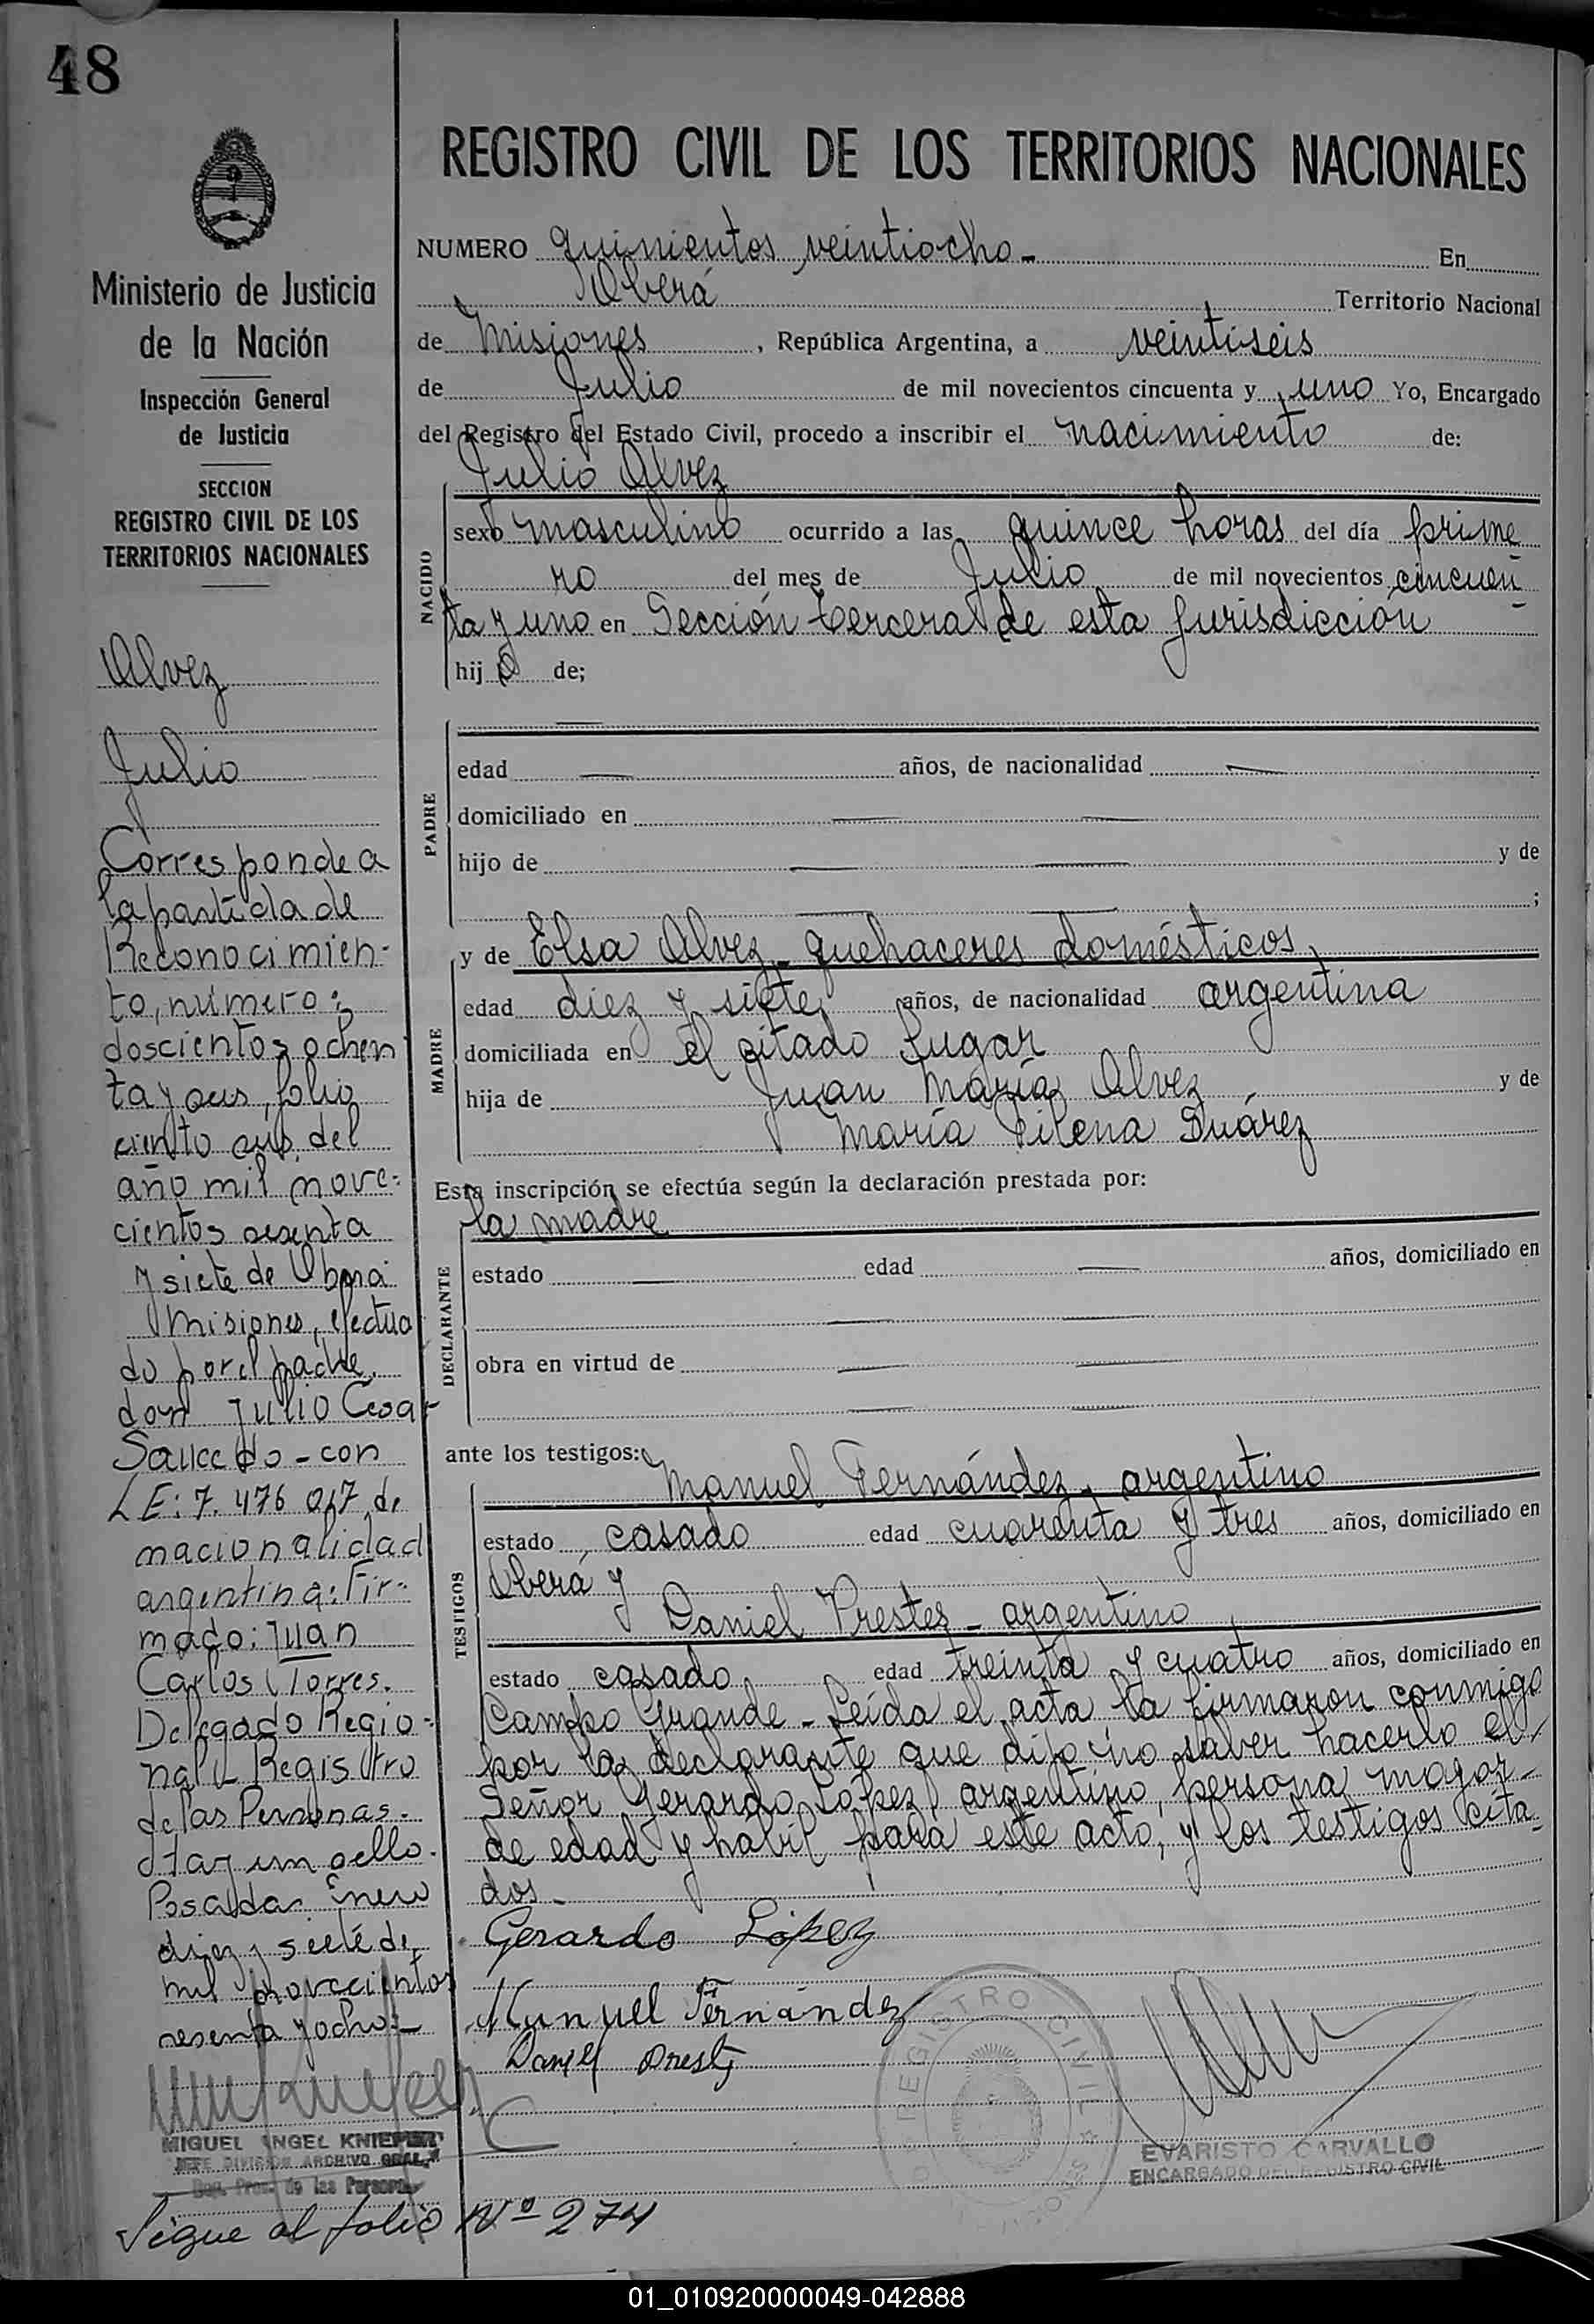 48
REGISTRO CIVIL DE LOS TERRITORIOS NACIONALES
Ministerio de Justicia
de la Nación
Inspección General
de Justicia
SECCION
REGISTRO CIVIL DE LOS
TERRITORIOS NACIONALES
Alvez
Julio
Corresponde a
la partida de
Reconocimien-
to, número:
doscientos ochen
ta y seis, folio
ciento seis, del
año mil nove-
cientos sesenta
y siete de Oberá
Misiones, efectua
do por el padre,
don Julio Cesar
Saucedo - con
LE: 7.476.017 de
nacionalidad
argentina: Fir-
mado: Juan
Carlos Torres.
Delegado Regio-
nal Registro
de las Personas.
Hay un sello.
Posadas Enero
diez y siete de
mil novecientos
sesenta y ocho.-
MIGUEL ANGEL
JEFE DIVISION ARCHIVO GRAL.
de las Personas
Sigue al folio Nº 274
NUMERO quinientos veintiocho - En
Oberá Territorio Nacional
de Misiones, República Argentina, a veintiseis
de Julio de mil novecientos cincuenta y uno Yo, Encargado
del Registro del Estado Civil, procedo a inscribir el nacimiento de:
Julio Alvez
NACIDO
sexo masculino ocurrido a las quince horas del día prime
ro del mes de Julio de mil novecientos cincuen
ta y uno en Sección tercera de esta Jurisdicción
hijo de;
PADRE
edad años, de nacionalidad
domiciliado en
hijo de y de
;
MADRE
y de Elsa Alvez - quehaceres domésticos,
edad diez y siete años, de nacionalidad argentina
domiciliada en el citado lugar
hija de Juan María Alvez y de
María Filena Suárez
Esta inscripción se efectúa según la declaración prestada por:
la madre
DECLARANTE
estado edad años, domiciliado en
obra en virtud de
ante los testigos:
Manuel Fernández - argentino
TESTIGOS
estado casado edad cuarenta y tres años, domiciliado en
Oberá y
Daniel Prestes - argentino
estado casado edad treinta y cuatro años, domiciliado en
Campo Grande - Leída el acta la firmaron conmigo
por la declarante que dijo no saber hacerlo el
Señor Gerardo López, argentino, persona mayor
de edad y hábil para este acto, y los testigos cita
dos -
Gerardo López
Manuel Fernández
Daniel
REGISTRO CIVIL
EVARISTO CARVALLO
ENCARGADO DEL REGISTRO CIVIL
01_010920000049-042888